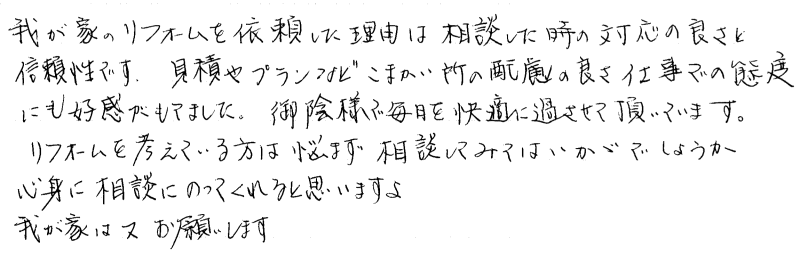 我が家のリフォームを依頼した理由は相談した時の対応の良さと
信頼性です. 見積やプランなどこまかい所の配慮の良さ仕事での態度
にも好感がもてました。御陰様で毎日を快適に過させて頂いています。
リフォームを考えている方は悩まず相談してみてはいかがでしょうか
心身に相談にのってくれると思いますよ
我が家は又お願いします